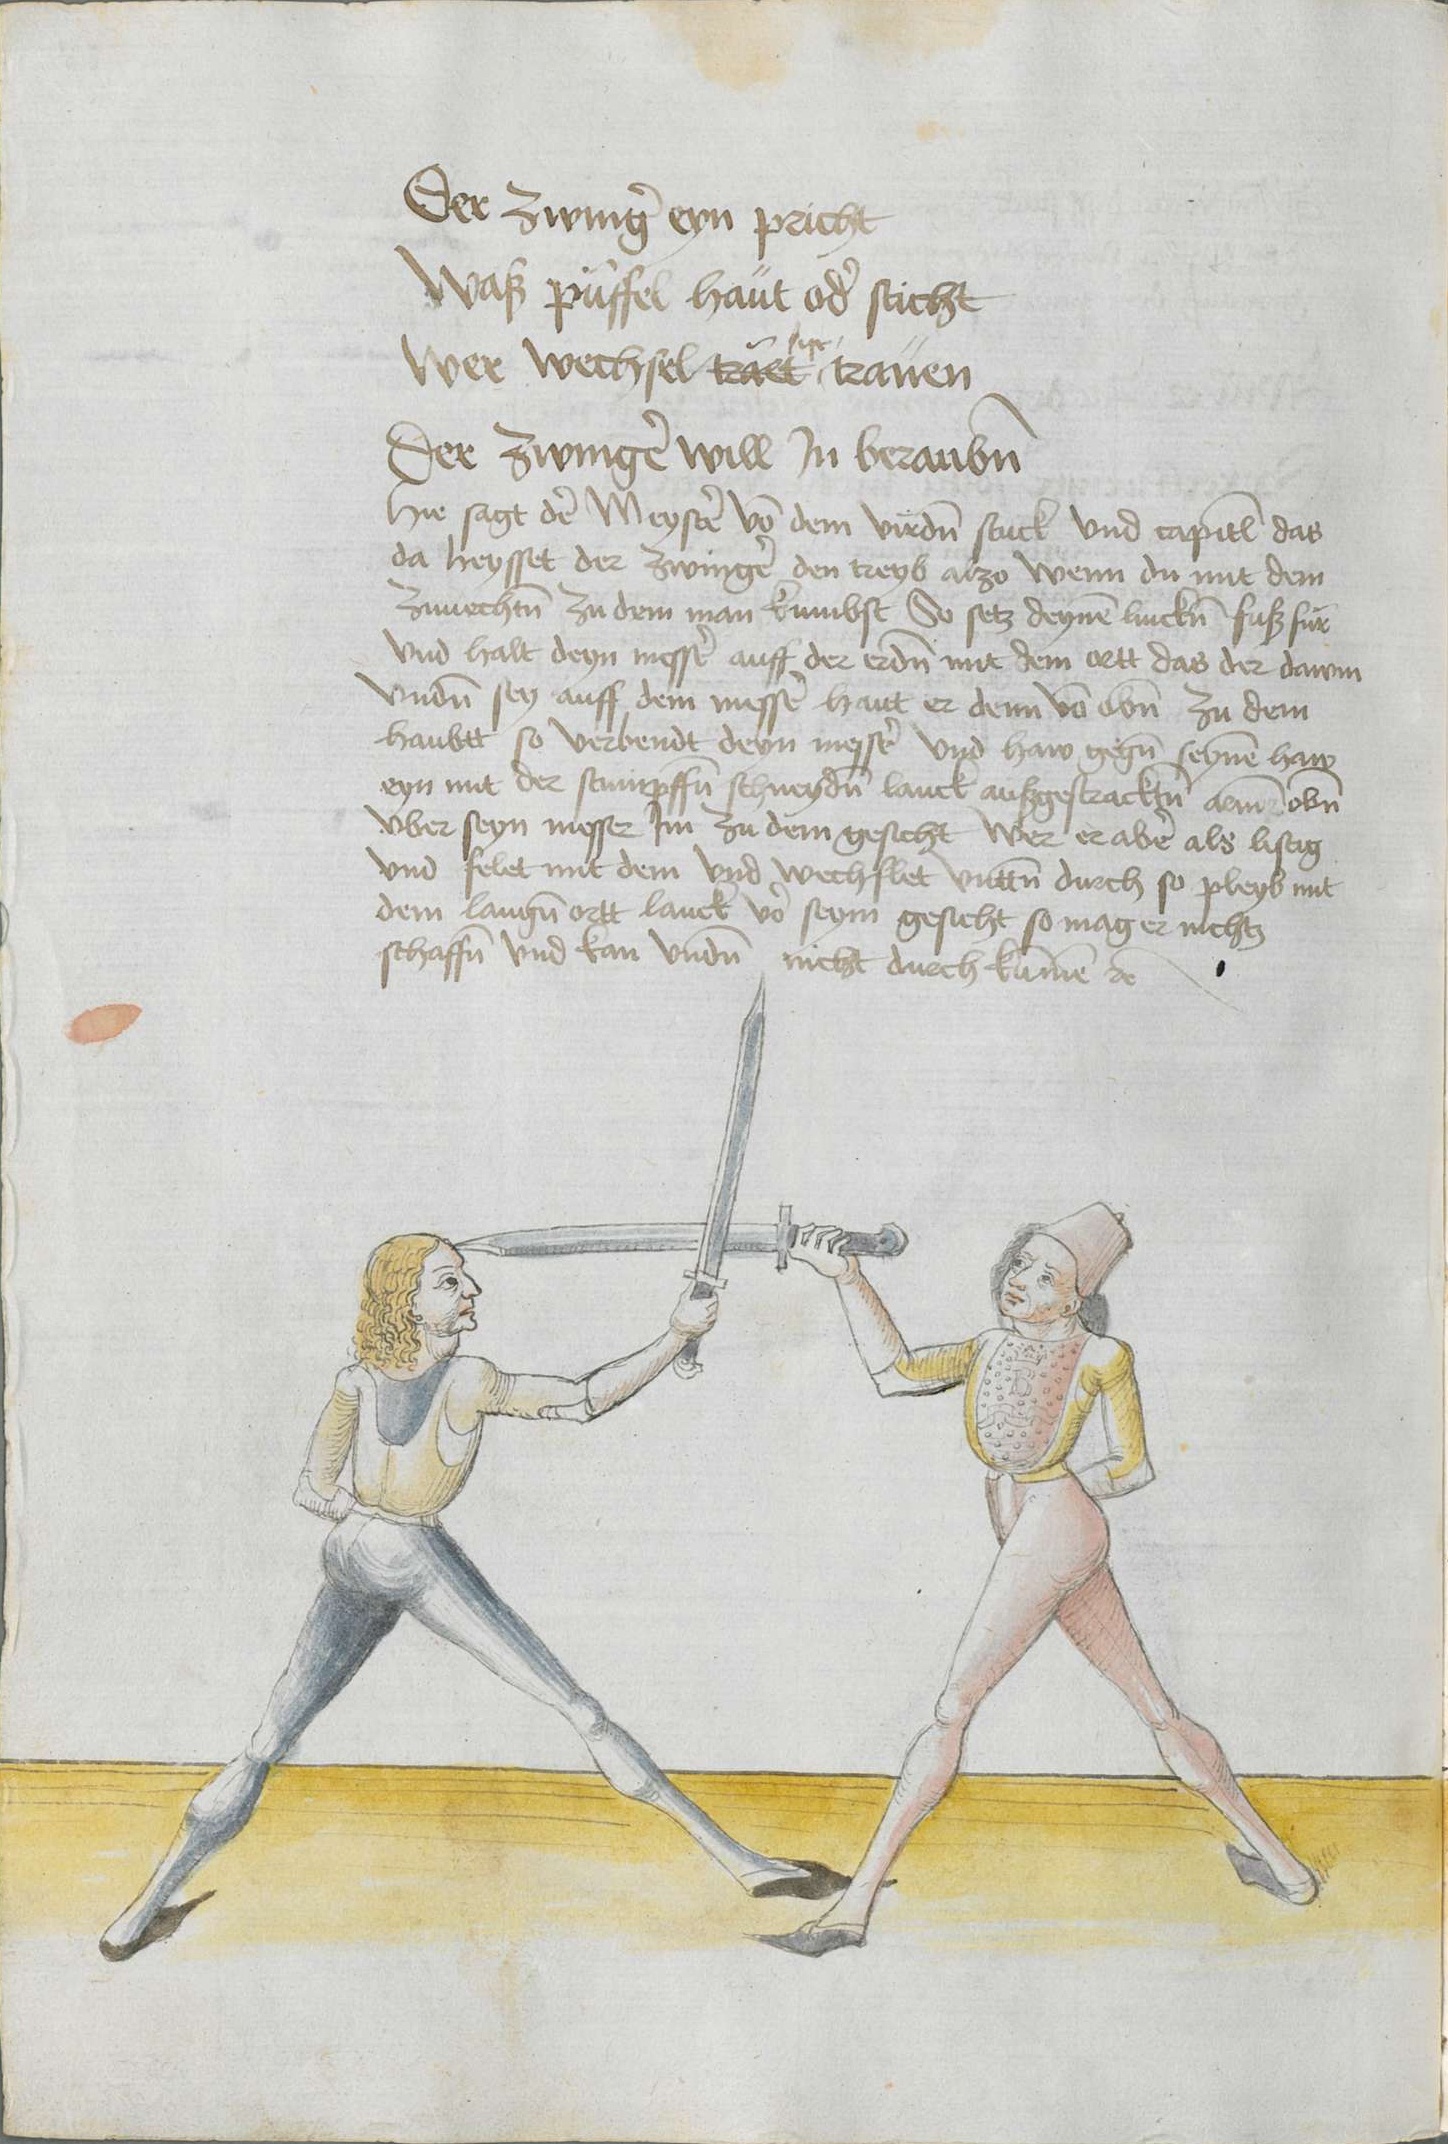 Der Zwinger eyn pricht
Waß püffel haüt oder sticht
Wer wechsel traüen
Der Zwinger will In beraubn̄
Hie sagt der Meyster vō dem virdn̄ stuck vnd capitl das
da heysset der zwinger den treyb alzo wenn du mit dem
zuuechtn̄ zu dem man kumbst So setz deynē linckn̄ fuß für
vnd halt deyn messer auff der erdn̄ mit dem ortt das der dawm
vndn̄ sey auff dem messer haut er denn vō obn̄ zu dem
haubtt so verbendt deyn messer vnd haw gegn̄ seynē haw
eyn mit der stumpffn̄ schneydn̄ lanck außgestracktn̄ armē obn̄
vber seyn messer Im zu dem gesicht Wer er aber als listig
vnd felet mit dem vnd wechslet vnttn̄ durch so pleyb mit
dem langn̄ ortt lanck vor seym gesicht so mag er nichtz
schaffn̄ vnd kan vndn̄ nicht durch kūmē